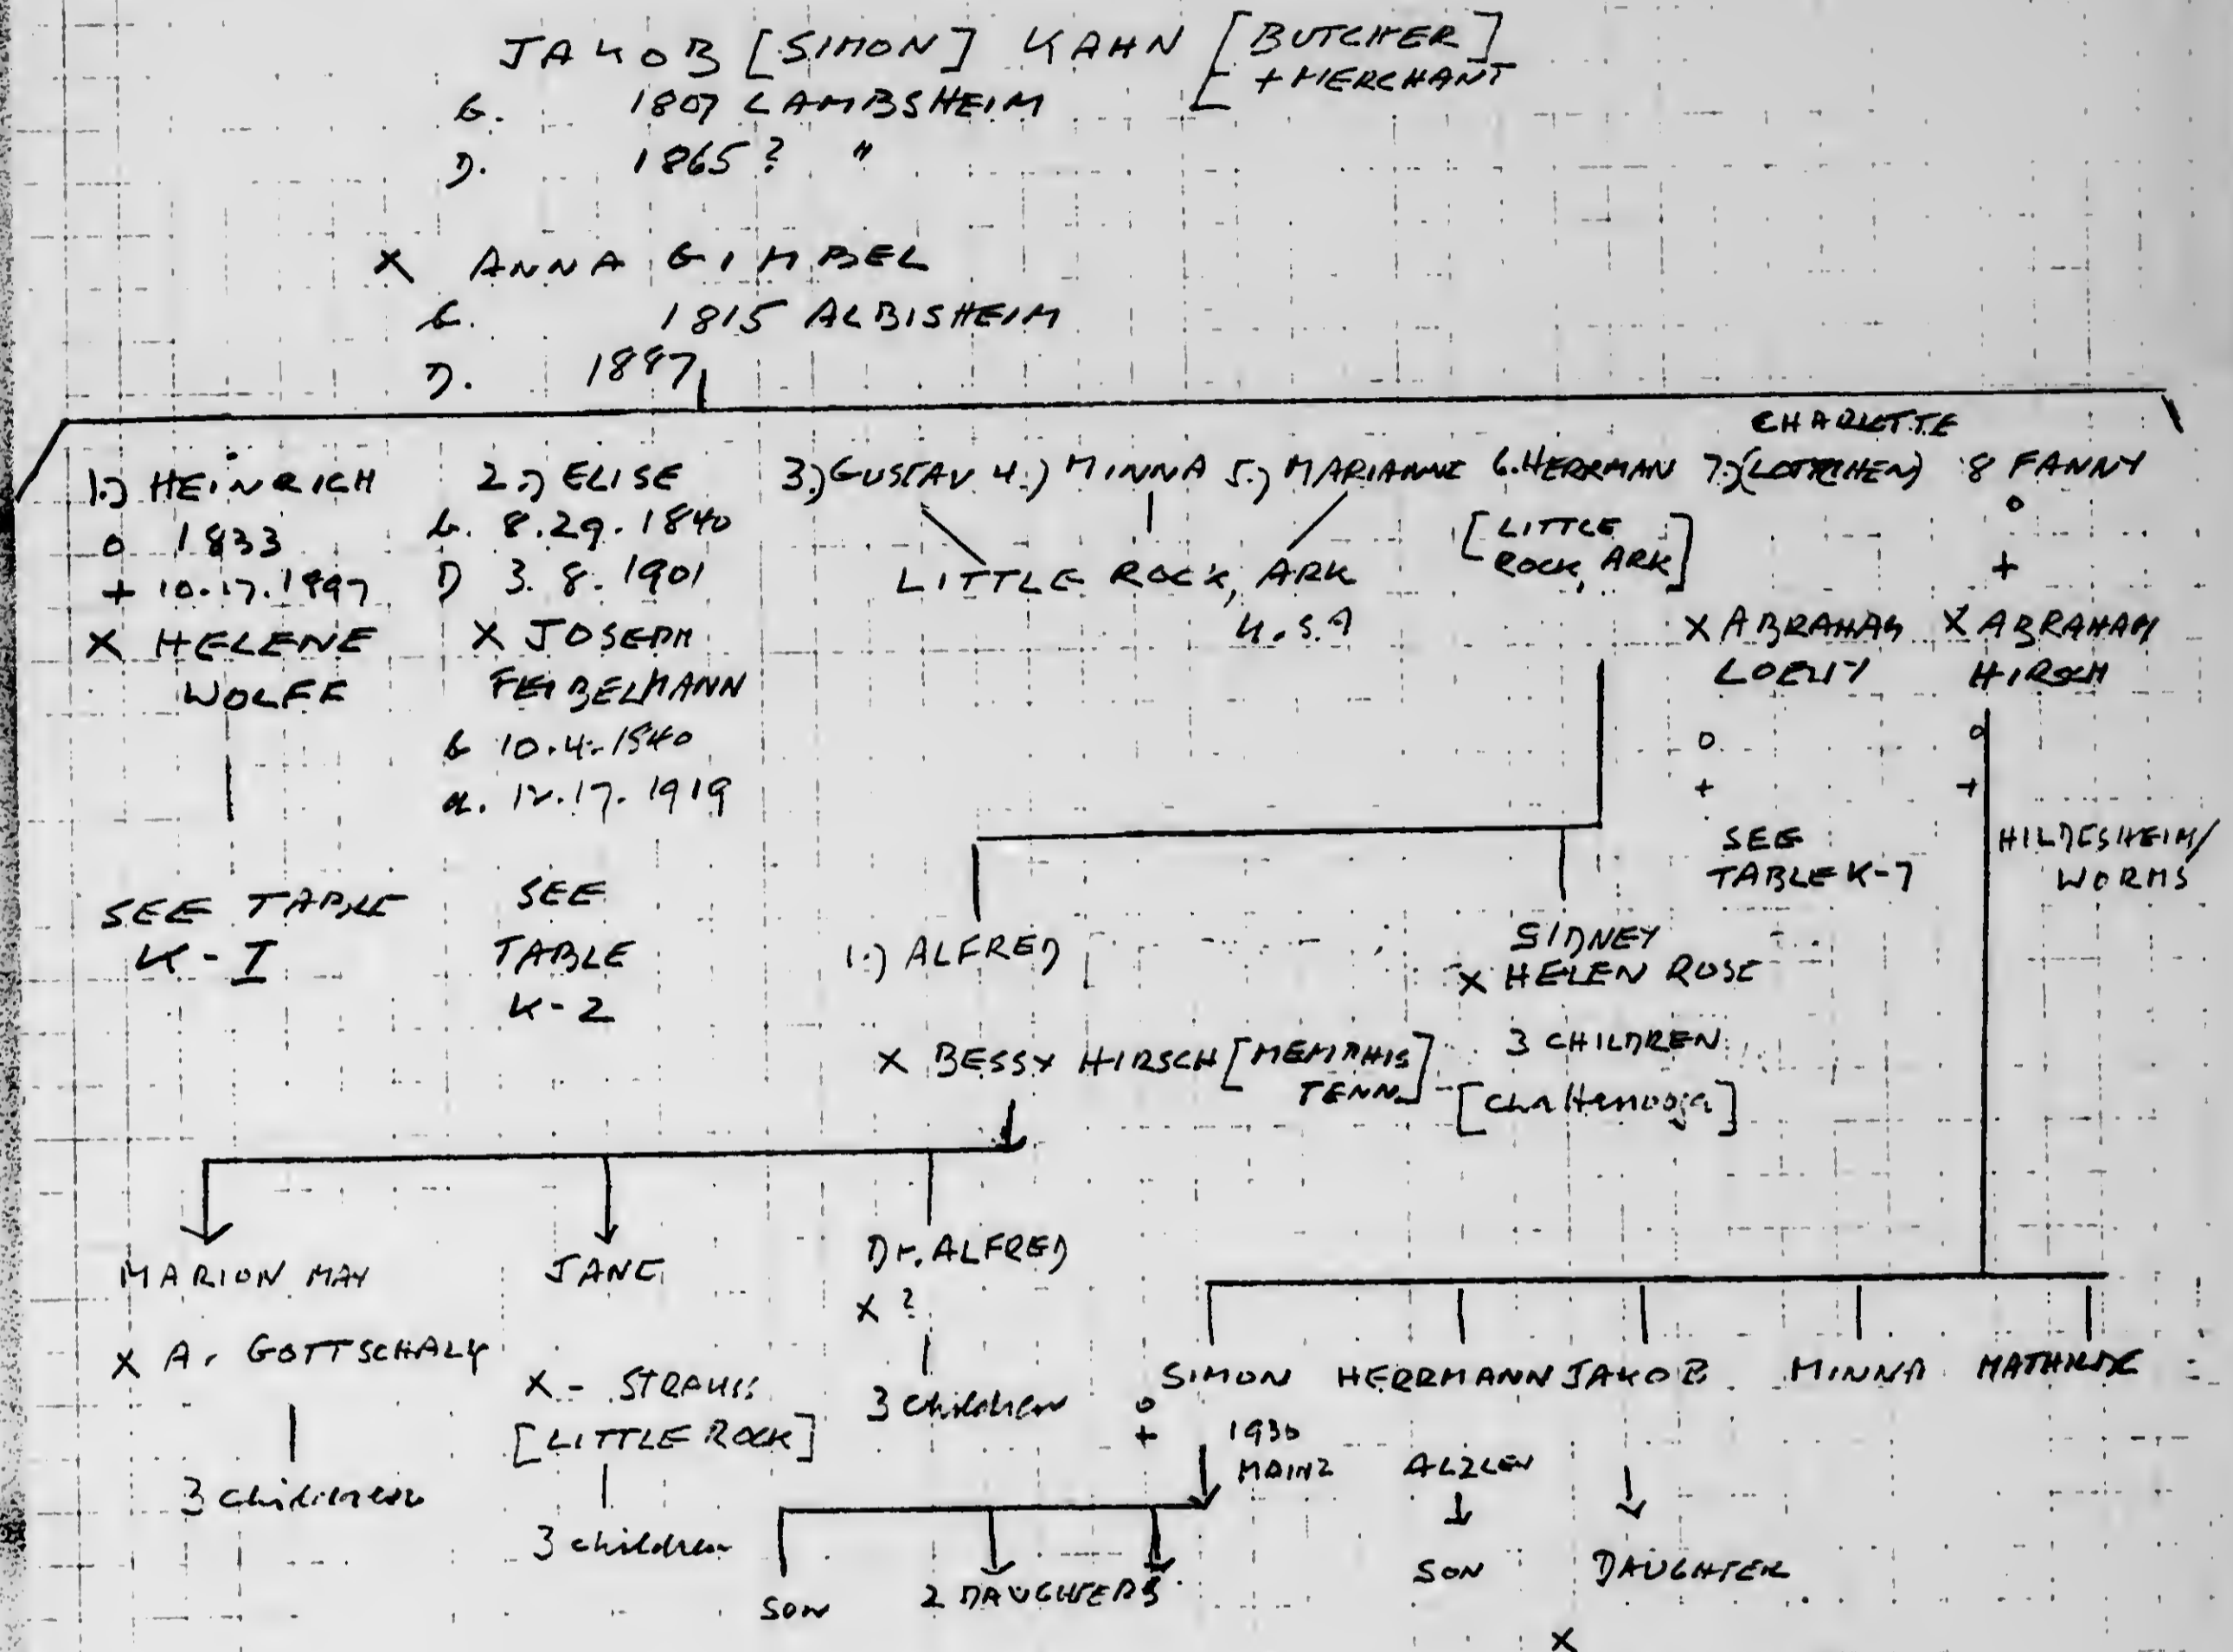 JAKOB [SIMON] KAHN [BUTCHER
+ MERCHANT]
b. 1807 LAMBSHEIM
D. 1865? "
X ANNA GIMBEL
b. 1815 ALBISHEIM
D. 1887
1.) HEINRICH
o 1833
+ 10.17.1897
X HELENE
WOLFF
SEE TABLE
K-I
2.) ELISE
b. 8.29.1840
D 3.8.1901
X JOSEPH
FEIBELMANN
b 10.4.1840
d. 12.17.1919
SEE
TABLE
K-2
3.) GUSTAV 4.) MINNA 5.) MARIANNE
LITTLE ROCK, ARK
U.S.A
6. HERRMAN
[LITTLE
ROCK, ARK]
CHARLOTTE
7.) (LOTTCHEN)
X ABRAHAM
LOEWY
o
+
SEE
TABLE K-7
8 FANNY
o
+
X ABRAHAM
HIRSCH
o
+
HILDESHEIM/
WORMS
1.) ALFRED
X BESSY HIRSCH [MEMPHIS
TENN]
SIDNEY
X HELEN ROSE
3 CHILDREN
[Chattanooga]
MARION MAY
X A. GOTTSCHALK
3 children
JANE
X - STRAUSS
[LITTLE ROCK]
3 children
Dr. ALFRED
X ?
3 children
SIMON
o
+ 1930
MAINZ
SON
2 DAUGHTERS
HERRMANN
SON
JAKOB
DAUGHTER
MINNA
MATHILDE
X